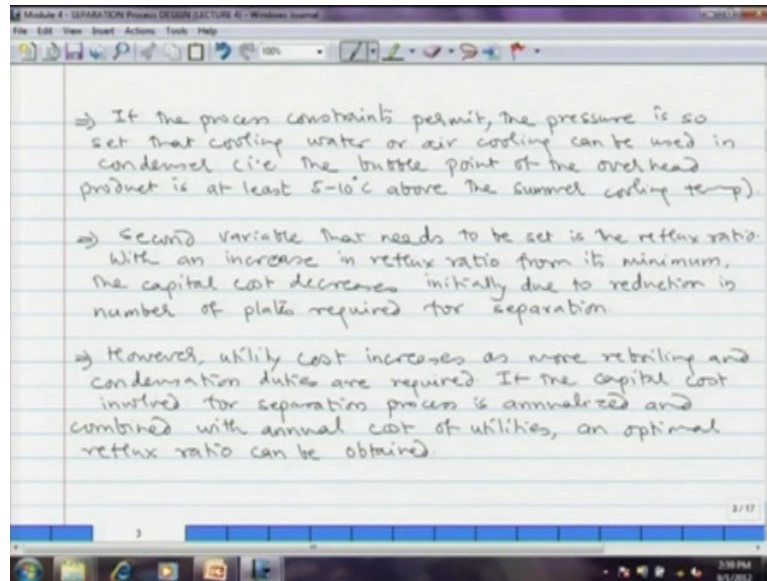 Module 4 - SEPARATION Process DESIGN (LECTURE 4) - Windows Journal
File Edit View Insert Actions Tools Help
100%
⇒ If the process constraints permit, the pressure is so
set that cooling water or air cooling can be used in
condenser (i.e the bubble point of the overhead
product is at least 5-10°C above the summer cooling temp).
⇒ Second variable that needs to be set is the reflux ratio.
With an increase in reflux ratio from its minimum,
the capital cost decreases initially due to reduction in
number of plates required for separation.
⇒ However, utility cost increases as more reboiling and
condensation duties are required. If the capital cost
involved for separation process is annualized and
combined with annual cost of utilities, an optimal
reflux ratio can be obtained.
3/17
3
2:39 PM
6/1/2012